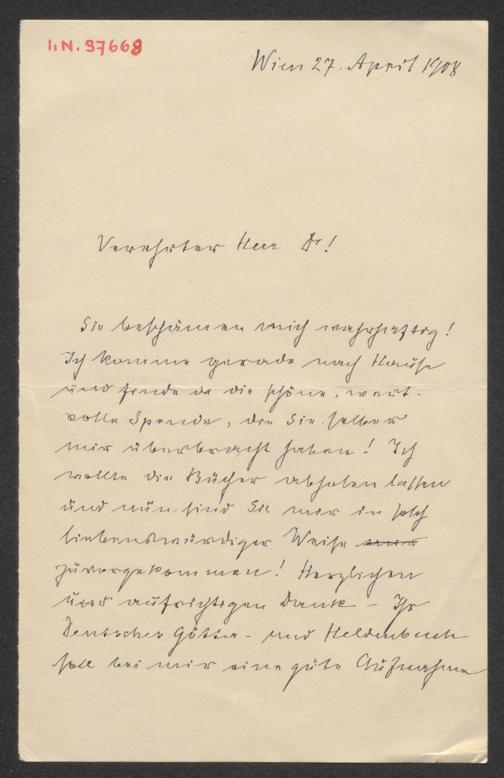 I.N. 97668
Wien 27. April 1908
Verehrter Herr Dr!
Sie beschämen mich wahrhaftig!
Ich komme gerade nach Hause
und finde da die schöne, wert-
volle Spende, die Sie selber
mir überbracht haben! Ich
wollte die Bücher abholen lassen
und nun sind Sie mir in solch
liebenswürdiger Weise
zuvorgekommen! Herzlichen
und aufrichtigen Dank – Ihr
Deutsches Götter- und Heldenbuch
soll bei mir eine gute Aufnahme